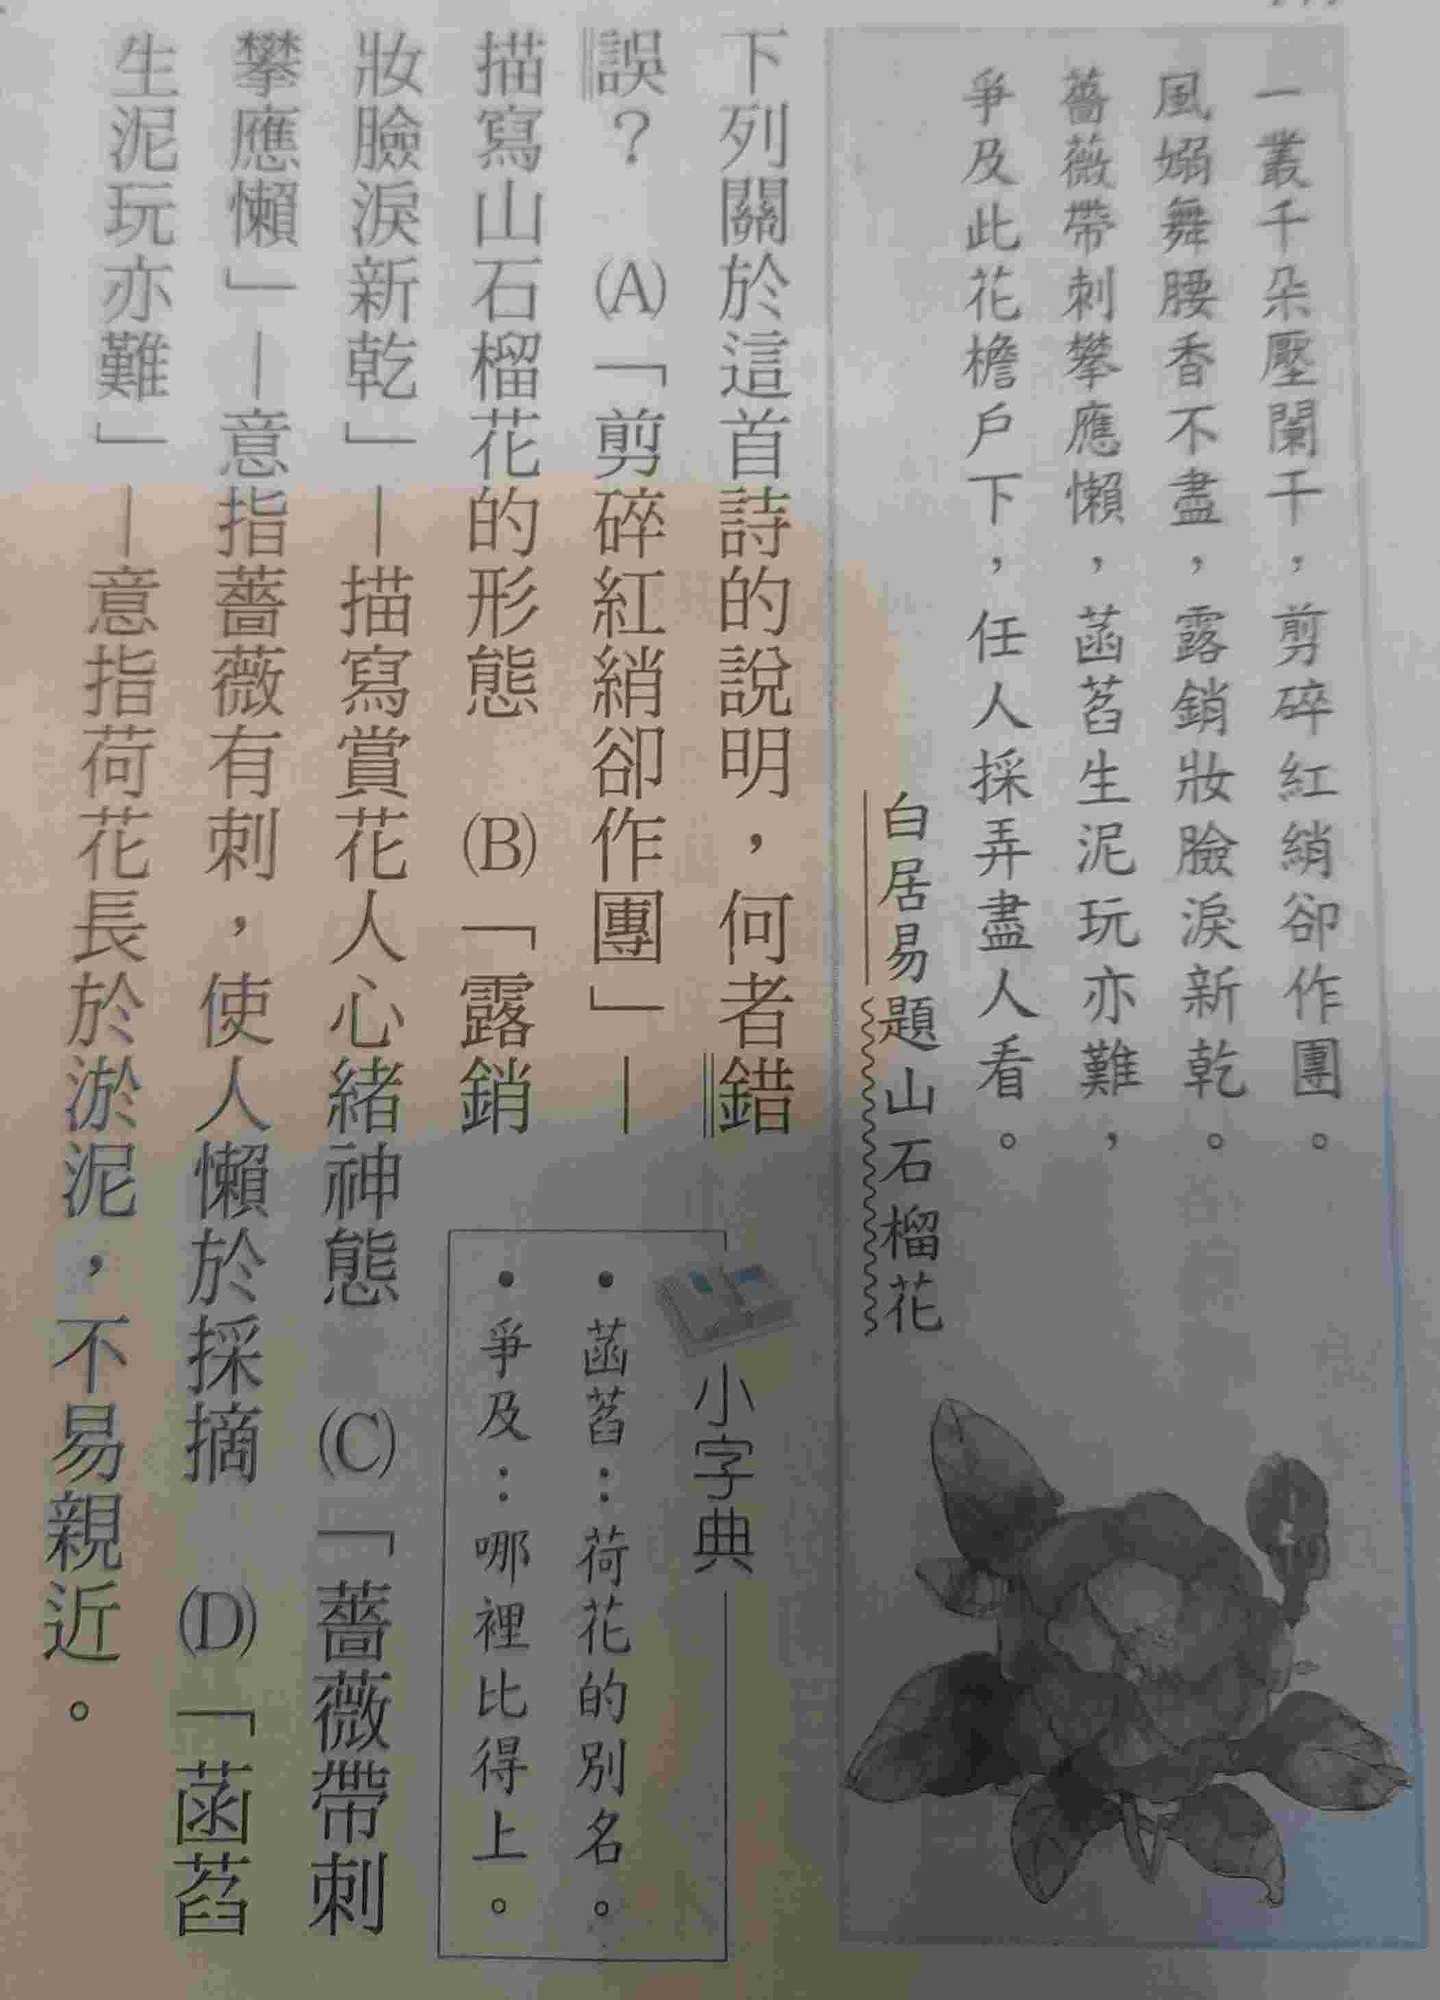 一叢千朵壓闌干，剪碎紅綃卻作團。
風嫋舞腰香不盡，露銷妝臉淚新乾。
薔薇帶刺攀應懶，菡萏生泥玩亦難，
爭及此花檐戶下，任人採弄盡人看。
白居易題山石榴花
下列關於這首詩的說明，何者錯
誤？　(A)「剪碎紅綃卻作團」—
描寫山石榴花的形態　(B)「露銷
妝臉淚新乾」—描寫賞花人心緒神態　(C)「薔薇帶刺
攀應懶」—意指薔薇有刺，使人懶於採摘　(D)「菡萏
生泥玩亦難」—意指荷花長於淤泥，不易親近。
小字典
•菡萏：荷花的別名。
•爭及：哪裡比得上。